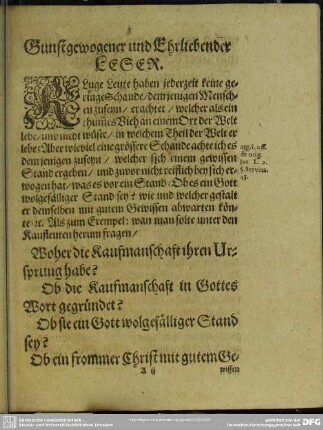 3
Gunstgewogener und Ehrliebender
LESER.
KLuge Leute haben jederzeit keine ge-
ringe Schande/ demjenigen Mensch-
en zuseyn/ erachtet/ welcher als ein
thumes Vieh an einem Ort der Welt
lebe/ und nicht wüste/ in welchem Theil der Welt er
lebe: Aber wie viel eine grössere Schande achte ich es
dem jenigen zuseyn/ welcher sich einem gewissen
Stand ergeben/ und zuvor nicht reifflich bey sich er-
wogen hat/ was es vor ein Stand: Ob es ein Gott
wolgefälliger Stand sey? wie und welcher gestalt
er demselben mit gutem Gewissen abwarten kön-
te. Als zum Exempel: wan man solte unter den
Kaufleuten herum fragen/
Woher die Kaufmanschaft ihren Ur-
sprung habe?
Ob die Kaufmanschaft in Gottes
Wort gegründet?
Ob sie ein Gott wolgefälliger Stand
sey?
Ob ein frommer Christ mit gutem Ge-
A ij
wissen